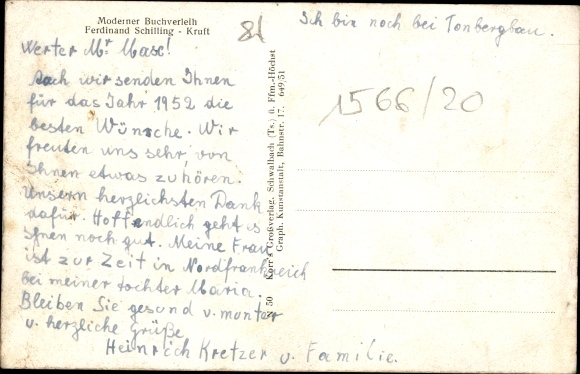 Moderner Buchverleih
Ferdinand Schilling - Kruft
81
Ich bin noch bei Tonbergbau.
Werter Mr. Max!
Auch wir senden Ihnen
für das Jahr 1952 die
besten Wünsche. Wir
freuten uns sehr, von
Ihnen etwas zu hören.
Unsern herzlichsten Dank
dafür. Hoffendlich geht is
Ihnen noch gut. Meine Frau
ist zur Zeit in Nordfrankreich
bei meiner tochter Maria.
Bleiben Sie gesund u. munter
u. herzliche Grüße
Heinrich Kretzer u. Familie.
1566/20
50 Korr's Großverlag, Schwalbach (Ts.) ü. Ffm.-Höchst
Graph. Kunstanstalt, Bahnstr. 17. 649/51